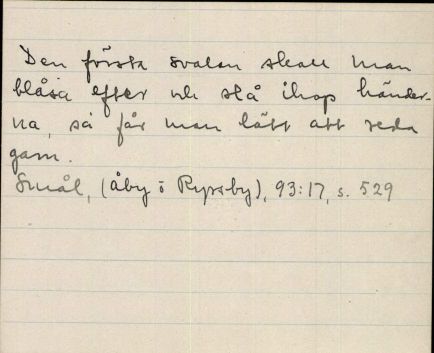 Den första svalan skall man
blåsa efter och slå ihop händer-
na, så får man lätt att reda
garn.
Smål, (Åby i Ryssby), 93:17, s. 529